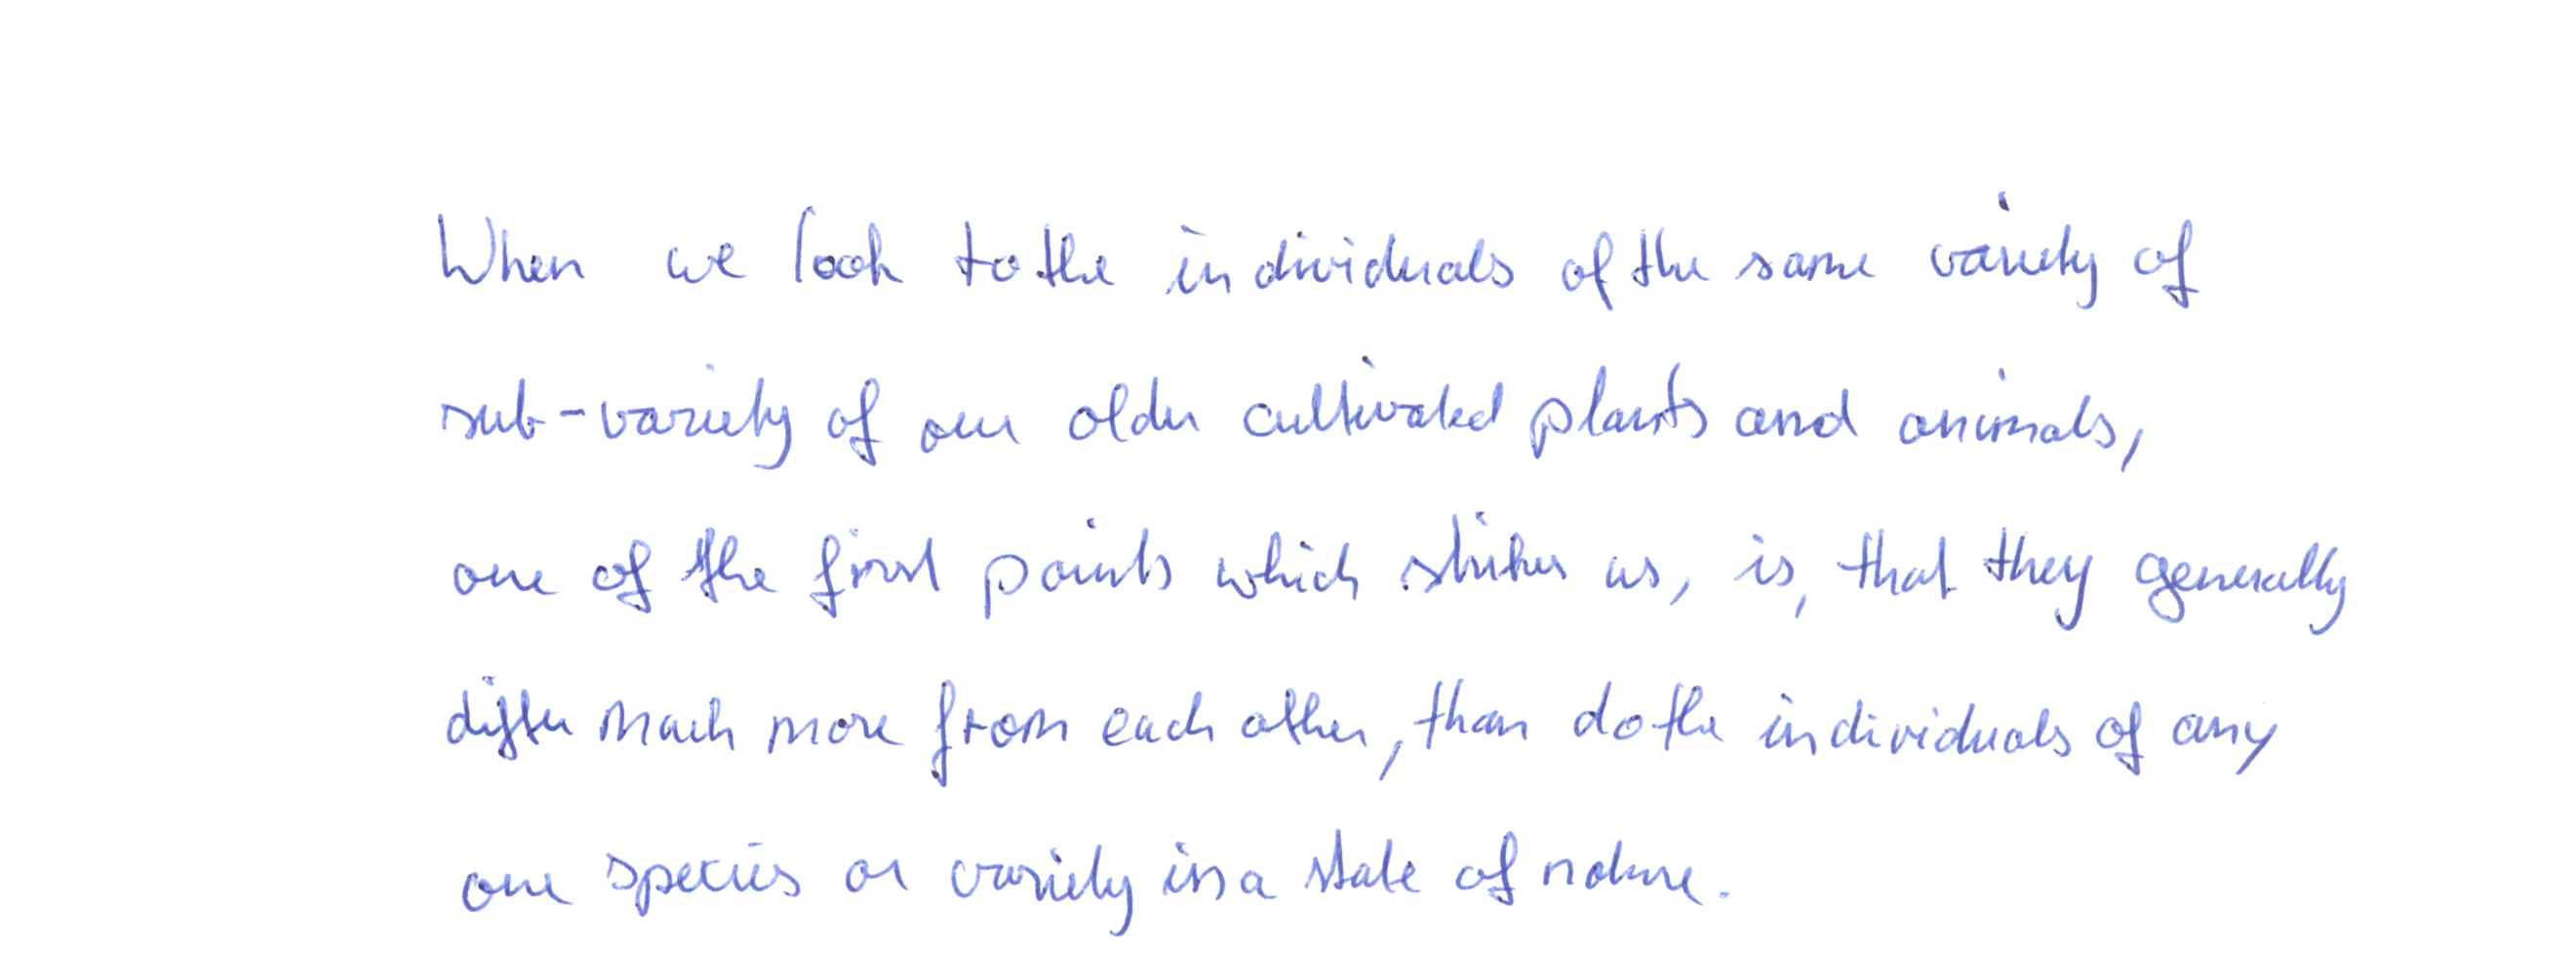 When we look to the individuals of the same variety of
sub-variety of our older cultivated plants and animals,
one of the first points which strikes us, is, that they generally
differ much more from each other, than do the individuals of any
one species or variety in a state of nature.